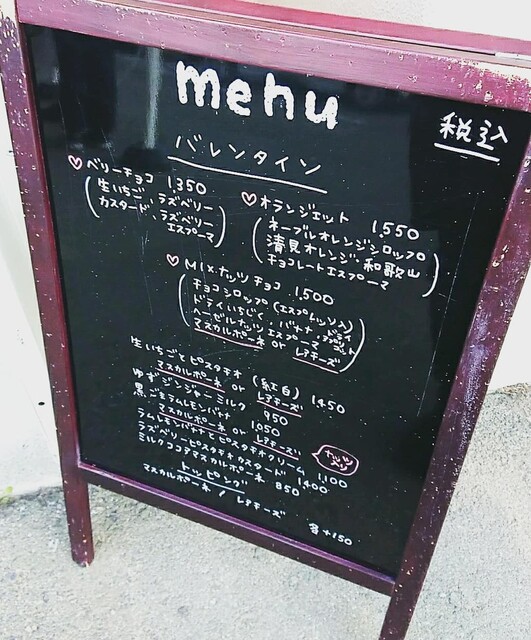 menu
税込
バレンタイン
♡ベリーチョコ 1,350
(生いちご、ラズベリー
カスタード、ラズベリー
エスプーマ)
♡オランジェット 1,550
(ネーブルオレンジシロップ
清見オレンジ、和歌山
チョコレートエスプーマ)
♡Mix.ナッツチョコ 1,500
(チョコシロップ(エスプレッソ入)
ドライいちじく、バナナ
ヘーゼルナッツエスプーマ
マスカルポーネ or レアチーズ)
生いちごとピスタチオ (紅白) 1,450
マスカルポーネ or レアチーズ
ゆずジンジャーミルク 950
黒ごまラムレモンバナナ 1,050
マスカルポーネ or レアチーズ
ラムレモンバナナとピスタチオクリーム 1,100
ナッツ入り
ラズベリーピスタチオカスタード 1400
ミルクココアマスカルポーネ 850
トッピング
マスカルポーネ / レアチーズ 各+150